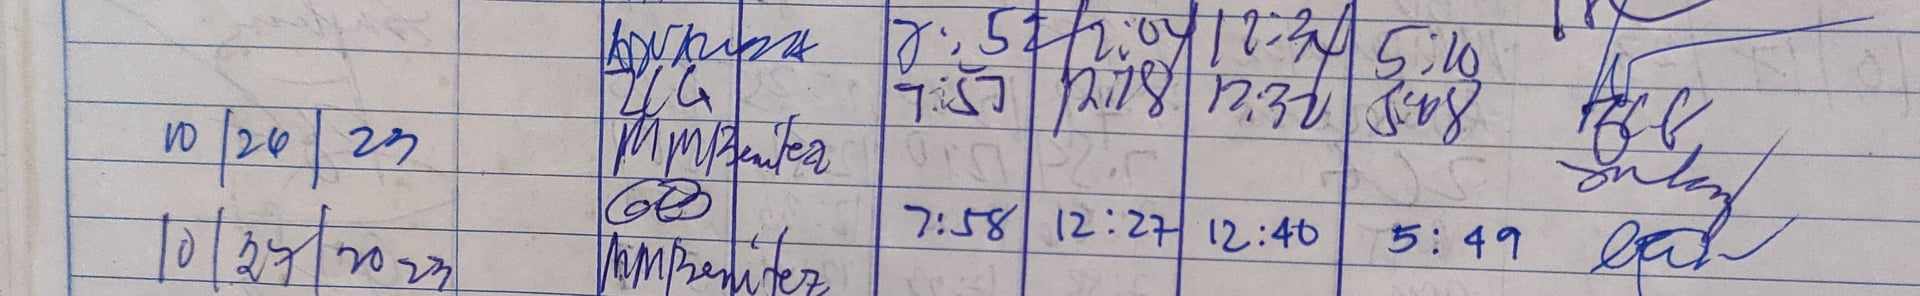 7:57 12:04 12:34 5:10
ZCG 7:57 12:18 12:32 5:08
10/26/23 MMBenitez
7:58 12:27 12:40 5:49
10/27/2023 MMBenitez